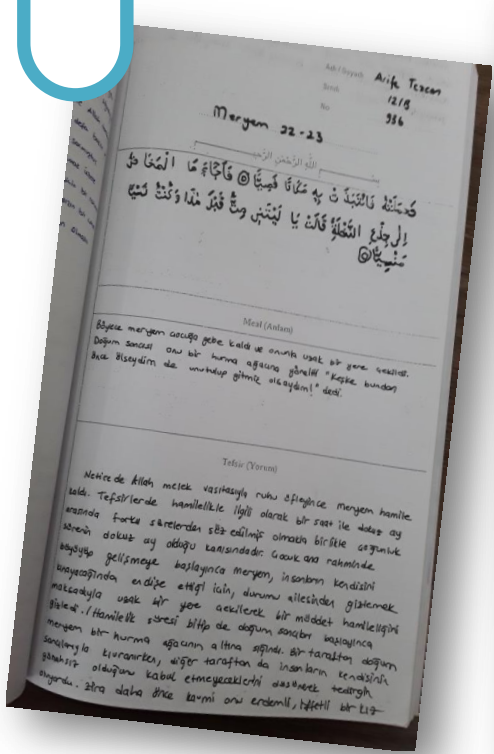 Adı / Soyadı Arife Tezcan
Sınıfı 12/B
No 936
Meryem 22-23
فَحَمَلَتْهُ فَانْتَبَذَتْ بِهِ مَكَانًا قَصِيًّا فَاَجَٓاءَهَا الْمَخَاضُ
اِلٰى جِذْعِ النَّخْلَةِۚ قَالَتْ يَا لَيْتَن۪ي مِتُّ قَبْلَ هٰذَا وَكُنْتُ نَسْيًا
مَنْسِيًّا
Meal (Anlam)
Böylece meryem çocuğa gebe kaldı ve onunla uzak bir yere çekildi.
Doğum sancısı onu bir hurma ağacına yöneltti "Keşke bundan
önce ölseydim de unutulup gitmiş olsaydım!" dedi.
Tefsir (Yorum)
Neticede Allah melek vasıtasıyla ruhu üfleyince meryem hamile
kaldı. Tefsirlerde hamilelikle ilgili olarak bir saat ile dokuz ay
arasında farklı sürelerden söz edilmiş olmakla birlikte çoğunluk
sürenin dokuz ay olduğu kanısındadır. Çocuk ana rahminde
büyüyüp gelişmeye başlayınca meryem, insanların kendisini
kınayacağından endişe ettiği için, durumu ailesinden gizlemek
maksadıyla uzak bir yere çekilerek bir müddet hamileliğini
gizledi. / Hamilelik süresi bitip de doğum sancıları başlayınca
meryem bir hurma ağacının altına sığındı. Bir taraftan doğum
sancılarıyla kıvranırken, diğer taraftan da insanların kendisinin
günahsız olduğunu kabul etmeyeceklerini düşünerek tedirgin
oluyordu. Zira daha önce kavmi onu erdemli, iffetli bir kız